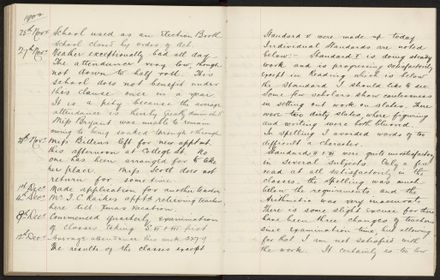 1902
25th Nov. School used as an Election Booth
School closed by order of
27th Nov. Weather exceptionally bad all day
The attendance very low, though
not down to half roll. This
school does not benefit under
this clause once in a year
It is a pity because the average
attendance is being greatly
Miss was unable to
owing to being soaked through
Nov. Miss Billens left for new appt.
this afternoon at College St. No
one has been arranged for to take
her place. Miss Scott does not
return for some time.
1st Dec. Made application for another teacher
Dec. Mr. J. C. appt. relieving teacher
here till Xmas vacation.
Dec. Commenced quarterly examination
of classes taking S. V first
12th Dec. Average attendance this week
The results of the classes except
Standard V were made up today
Individual Standards are noted
below:- Standard V is doing steady
work and is progressing satisfactorily
except in Reading which is below
the Standard I should like to see
Some few scholars show carelessness
in setting out work on slates. There
were two dirty slates where figuring
and writing were both blurred.
In spelling I avoided words of too
difficult a character.
Standards were quite unsatisfactory
in several subjects. Only a few
read at all satisfactorily in the
classes, the spelling was much
below the requirements and the
Arithmetic was very inaccurate.
There is some slight excuse for there
have been three changes of teachers
since examination time, but allowing
for that I am not satisfied with
the work. It certainly is too low